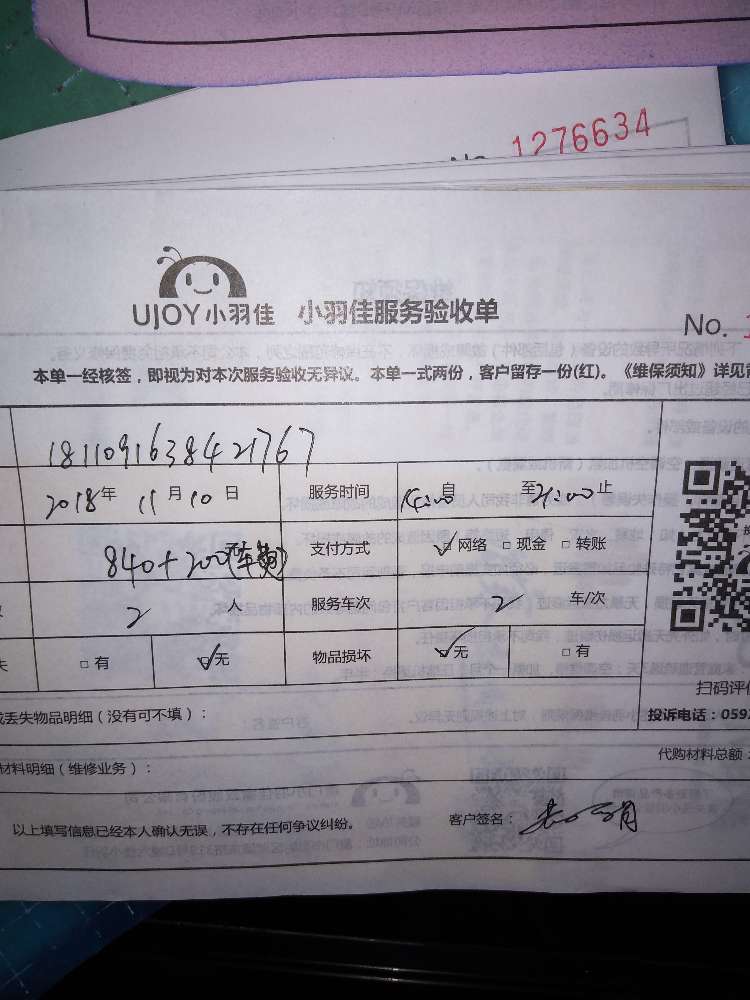 No. 1276634
UJOY小羽佳 小羽佳服务验收单
No.
本单一经核签，即视为对本次服务验收无异议。本单一式两份，客户留存一份(红)。《维保须知》详见背
1811091638421767
2018年 11月10日 服务时间 自 至21:00止
840+200(车费) 支付方式 ☑网络 □现金 □转账
2 人 服务车次 2 车/次
□有 ☑无 物品损坏 ☑无 □有
扫码评价
或丢失物品明细（没有可不填）： 投诉电话：059
代购材料总额：
材料明细（维修业务）：
以上填写信息已经本人确认无误，不存在任何争议纠纷。 客户签名：